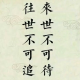 來世不可待
往世不可追